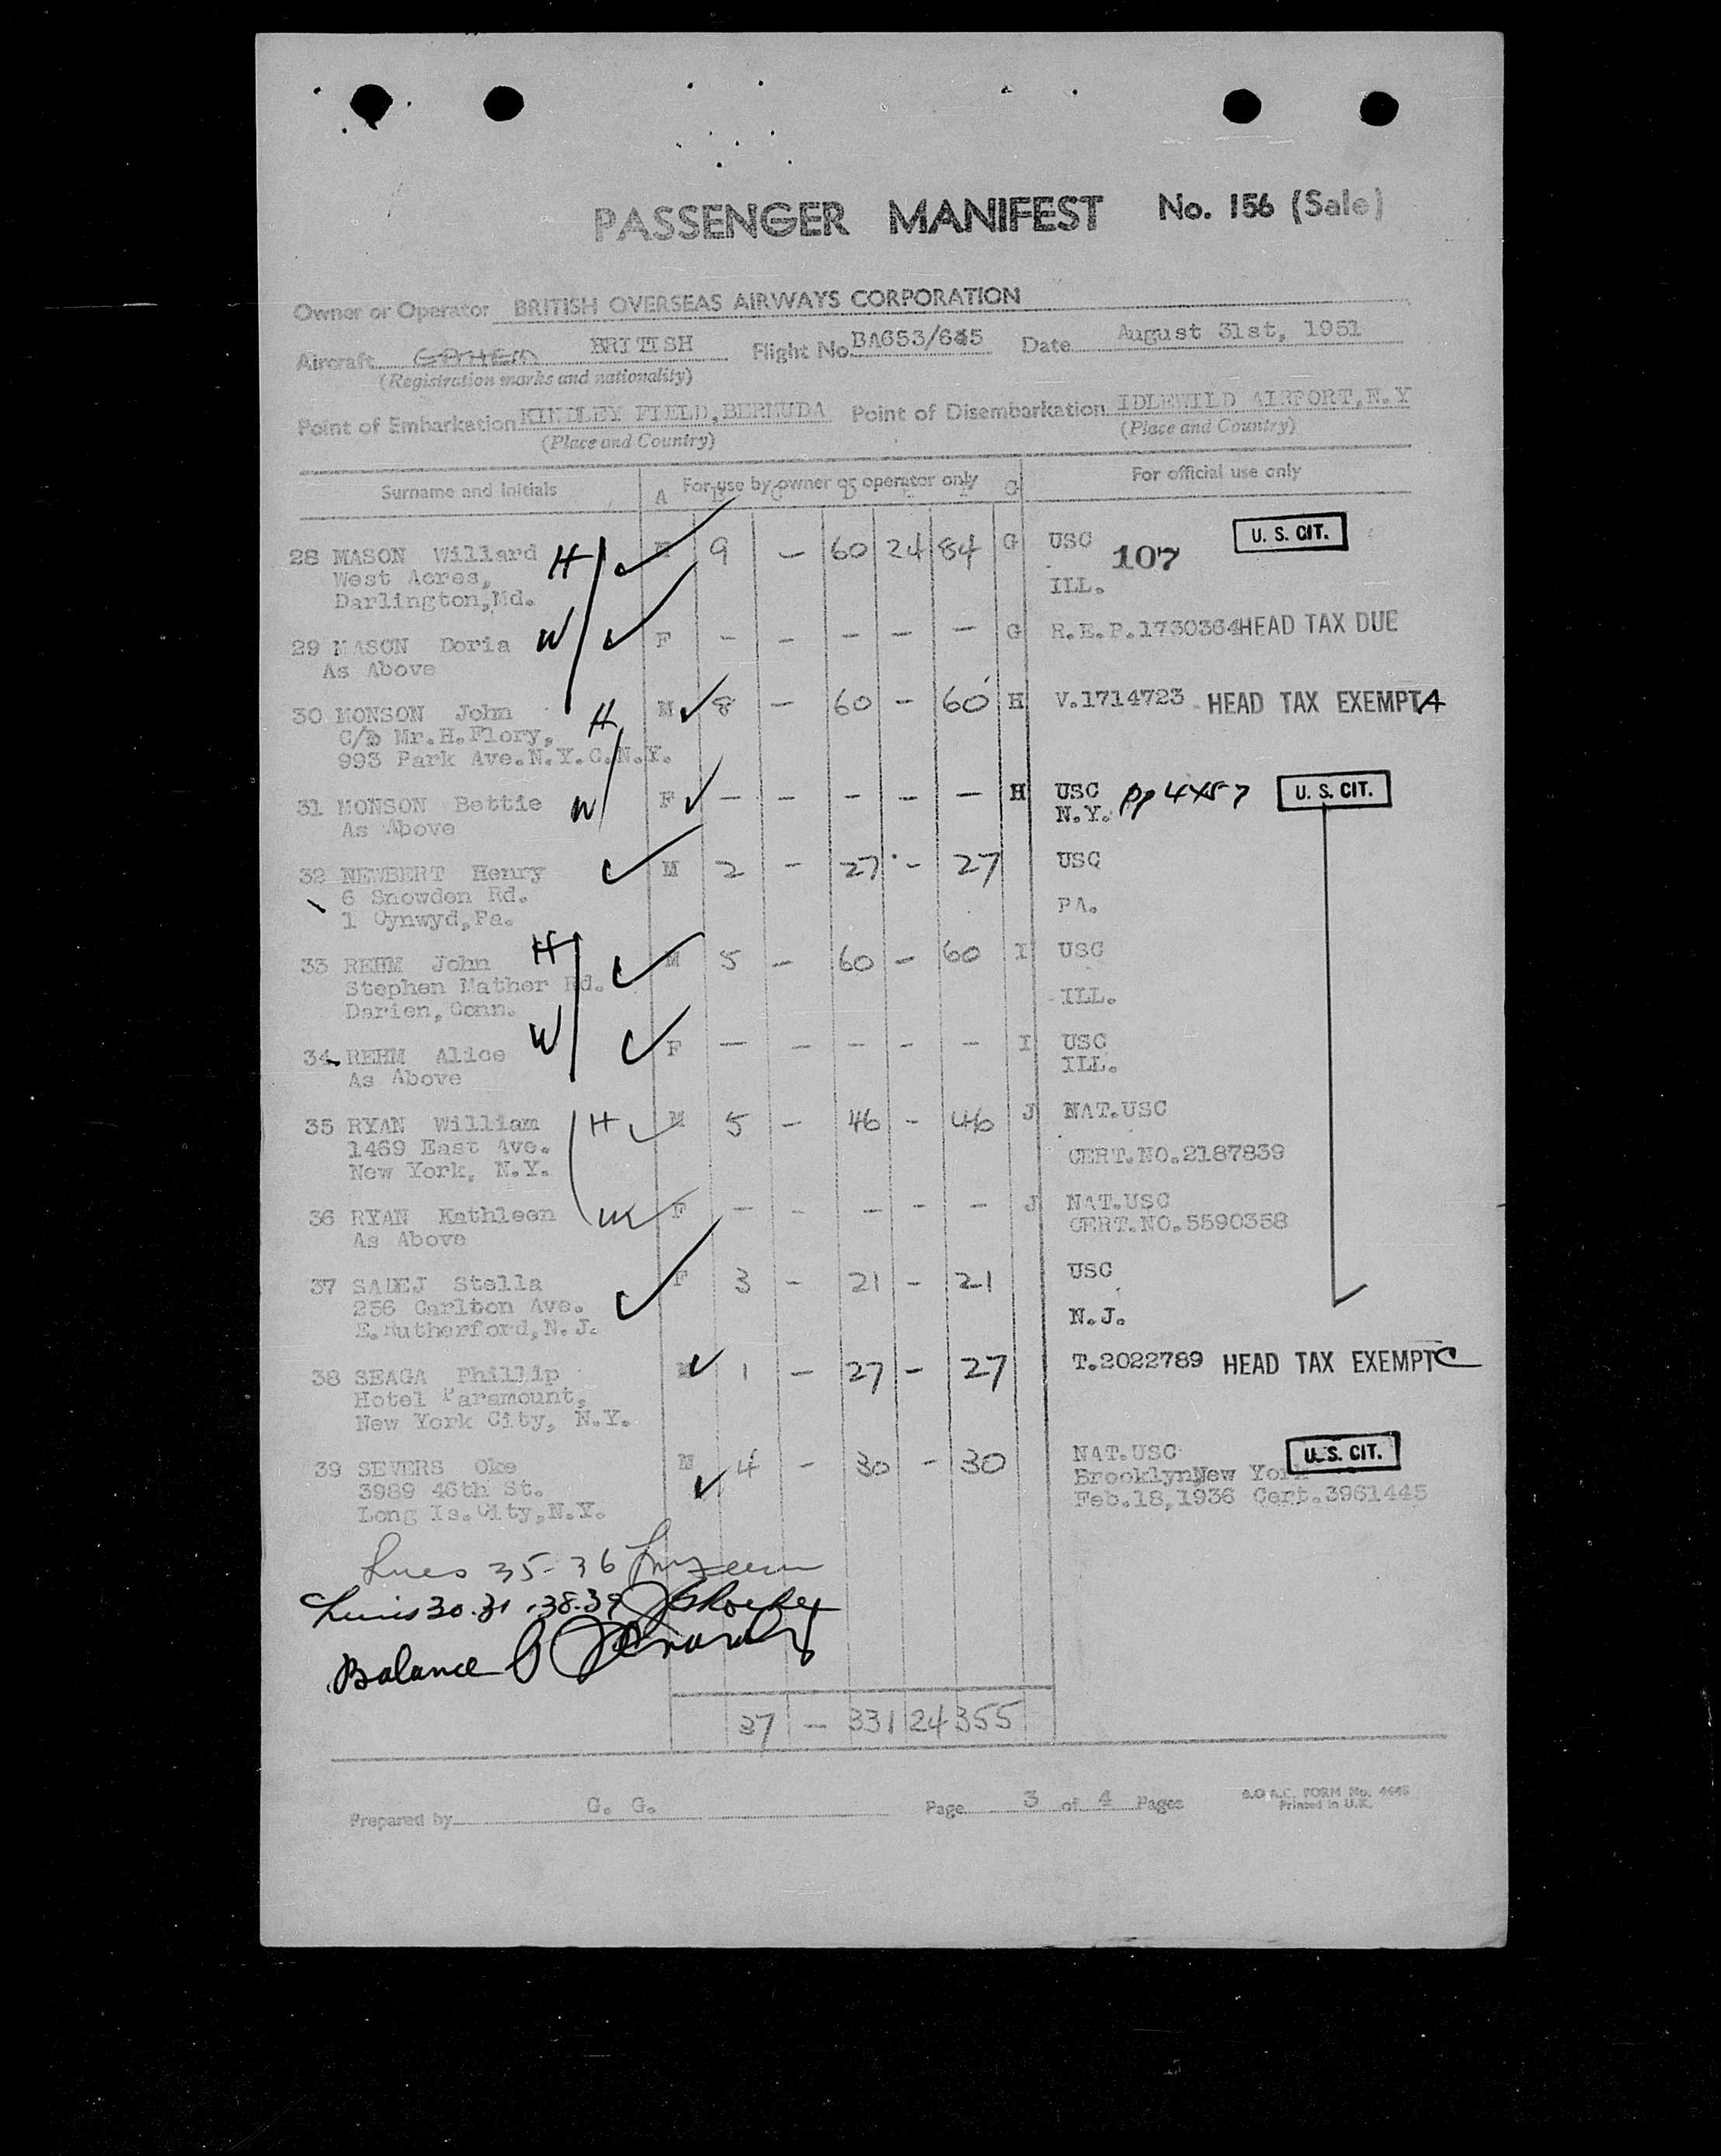 PASSENGER MANIFEST No. 156 (Sale)
Owner or Operator BRITISH OVERSEAS AIRWAYS CORPORATION
Aircraft BRITISH Flight No. BA653/645 Date August 31st, 1951
(Registration marks and nationality)
Point of Embarkation KINDLEY FIELD, BERMUDA Point of Disembarkation IDLEWILD AIRPORT, N.Y
(Place and Country) (Place and Country)
Surname and Initials A For use by owner or operator only G For official use only
28 MASON Willard H 9 - 60 24 84 G USC 107 U. S. CIT.
West Acres, ILL.
Darlington, Md.
29 MASON Doria W F - - - - - G R.E.P.1730364 HEAD TAX DUE
As Above
30 MONSON John H M 8 - 60 - 60 H V.1714723 HEAD TAX EXEMPT A
C/o Mr.H.Flory,
993 Park Ave.N.Y.C.N.Y.
31 MONSON Bettie W F - - - - - H USC pp 4457 U. S. CIT.
As Above N.Y.
32 NEWBERT Henry M 2 - 27 - 27 USC
6 Snowden Rd.
1 Cynwyd, Pa. PA.
33 REHM John H M 5 - 60 - 60 I USC
Stephen Mather Rd.
Darien, Conn. ILL.
34 REHM Alice W F - - - - - I USC
As Above ILL.
35 RYAN William H M 5 - 46 - 46 J NAT.USC
1469 East Ave. CERT.NO.2187839
New York, N.Y.
36 RYAN Kathleen W F - - - - - J NAT.USC
As Above CERT.NO.5590358
37 SADEJ Stella F 3 - 21 - 21 USC
256 Carlton Ave.
E.Rutherford, N.J. N.J.
38 SEAGA Phillip M 1 - 27 - 27 T.2022789 HEAD TAX EXEMPT C
Hotel Paramount,
New York City, N.Y.
39 SEVERS Oke M 4 - 30 - 30 NAT.USC U.S. CIT.
3989 46th St. Brooklyn New York
Long Is.City, N.Y. Feb.18,1936 Cert.3961445
Lines 35-36
Lines 30.31.38.39
Balance
37 - 331 24 355
Prepared by G. G. Page 3 of 4 Pages B.O.A.C. FORM No. 4645
Printed in U.K.